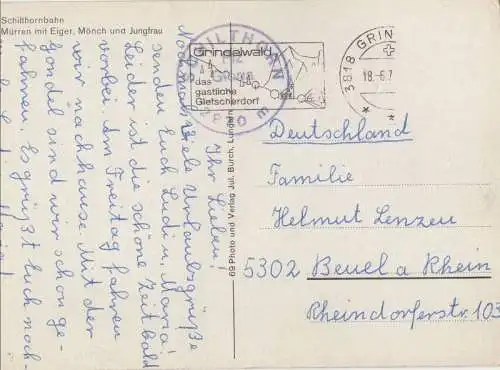 Schilthornbahn
Mürren mit Eiger, Mönch und Jungfrau
SCHILTHORN
Grindelwald
das
gastliche
Gletscherdorf
3818 GRIN
18.-6.7
69 Photo und Verlag Jul. Burch, Lungern
Ihr Lieben!
Nochmals viele Urlaubsgrüße
senden Euch Ludi u. Maria!
Leider ist die schöne Zeit bald
vorbei. Am Freitag fahren
wir nachhause. Mit der
Gondel sind wir schon ge-
fahren. Es grüßt Euch noch-
Deutschland
Familie
Helmut Lenzen
5302 Beuel a Rhein
Rheindorferstr. 103